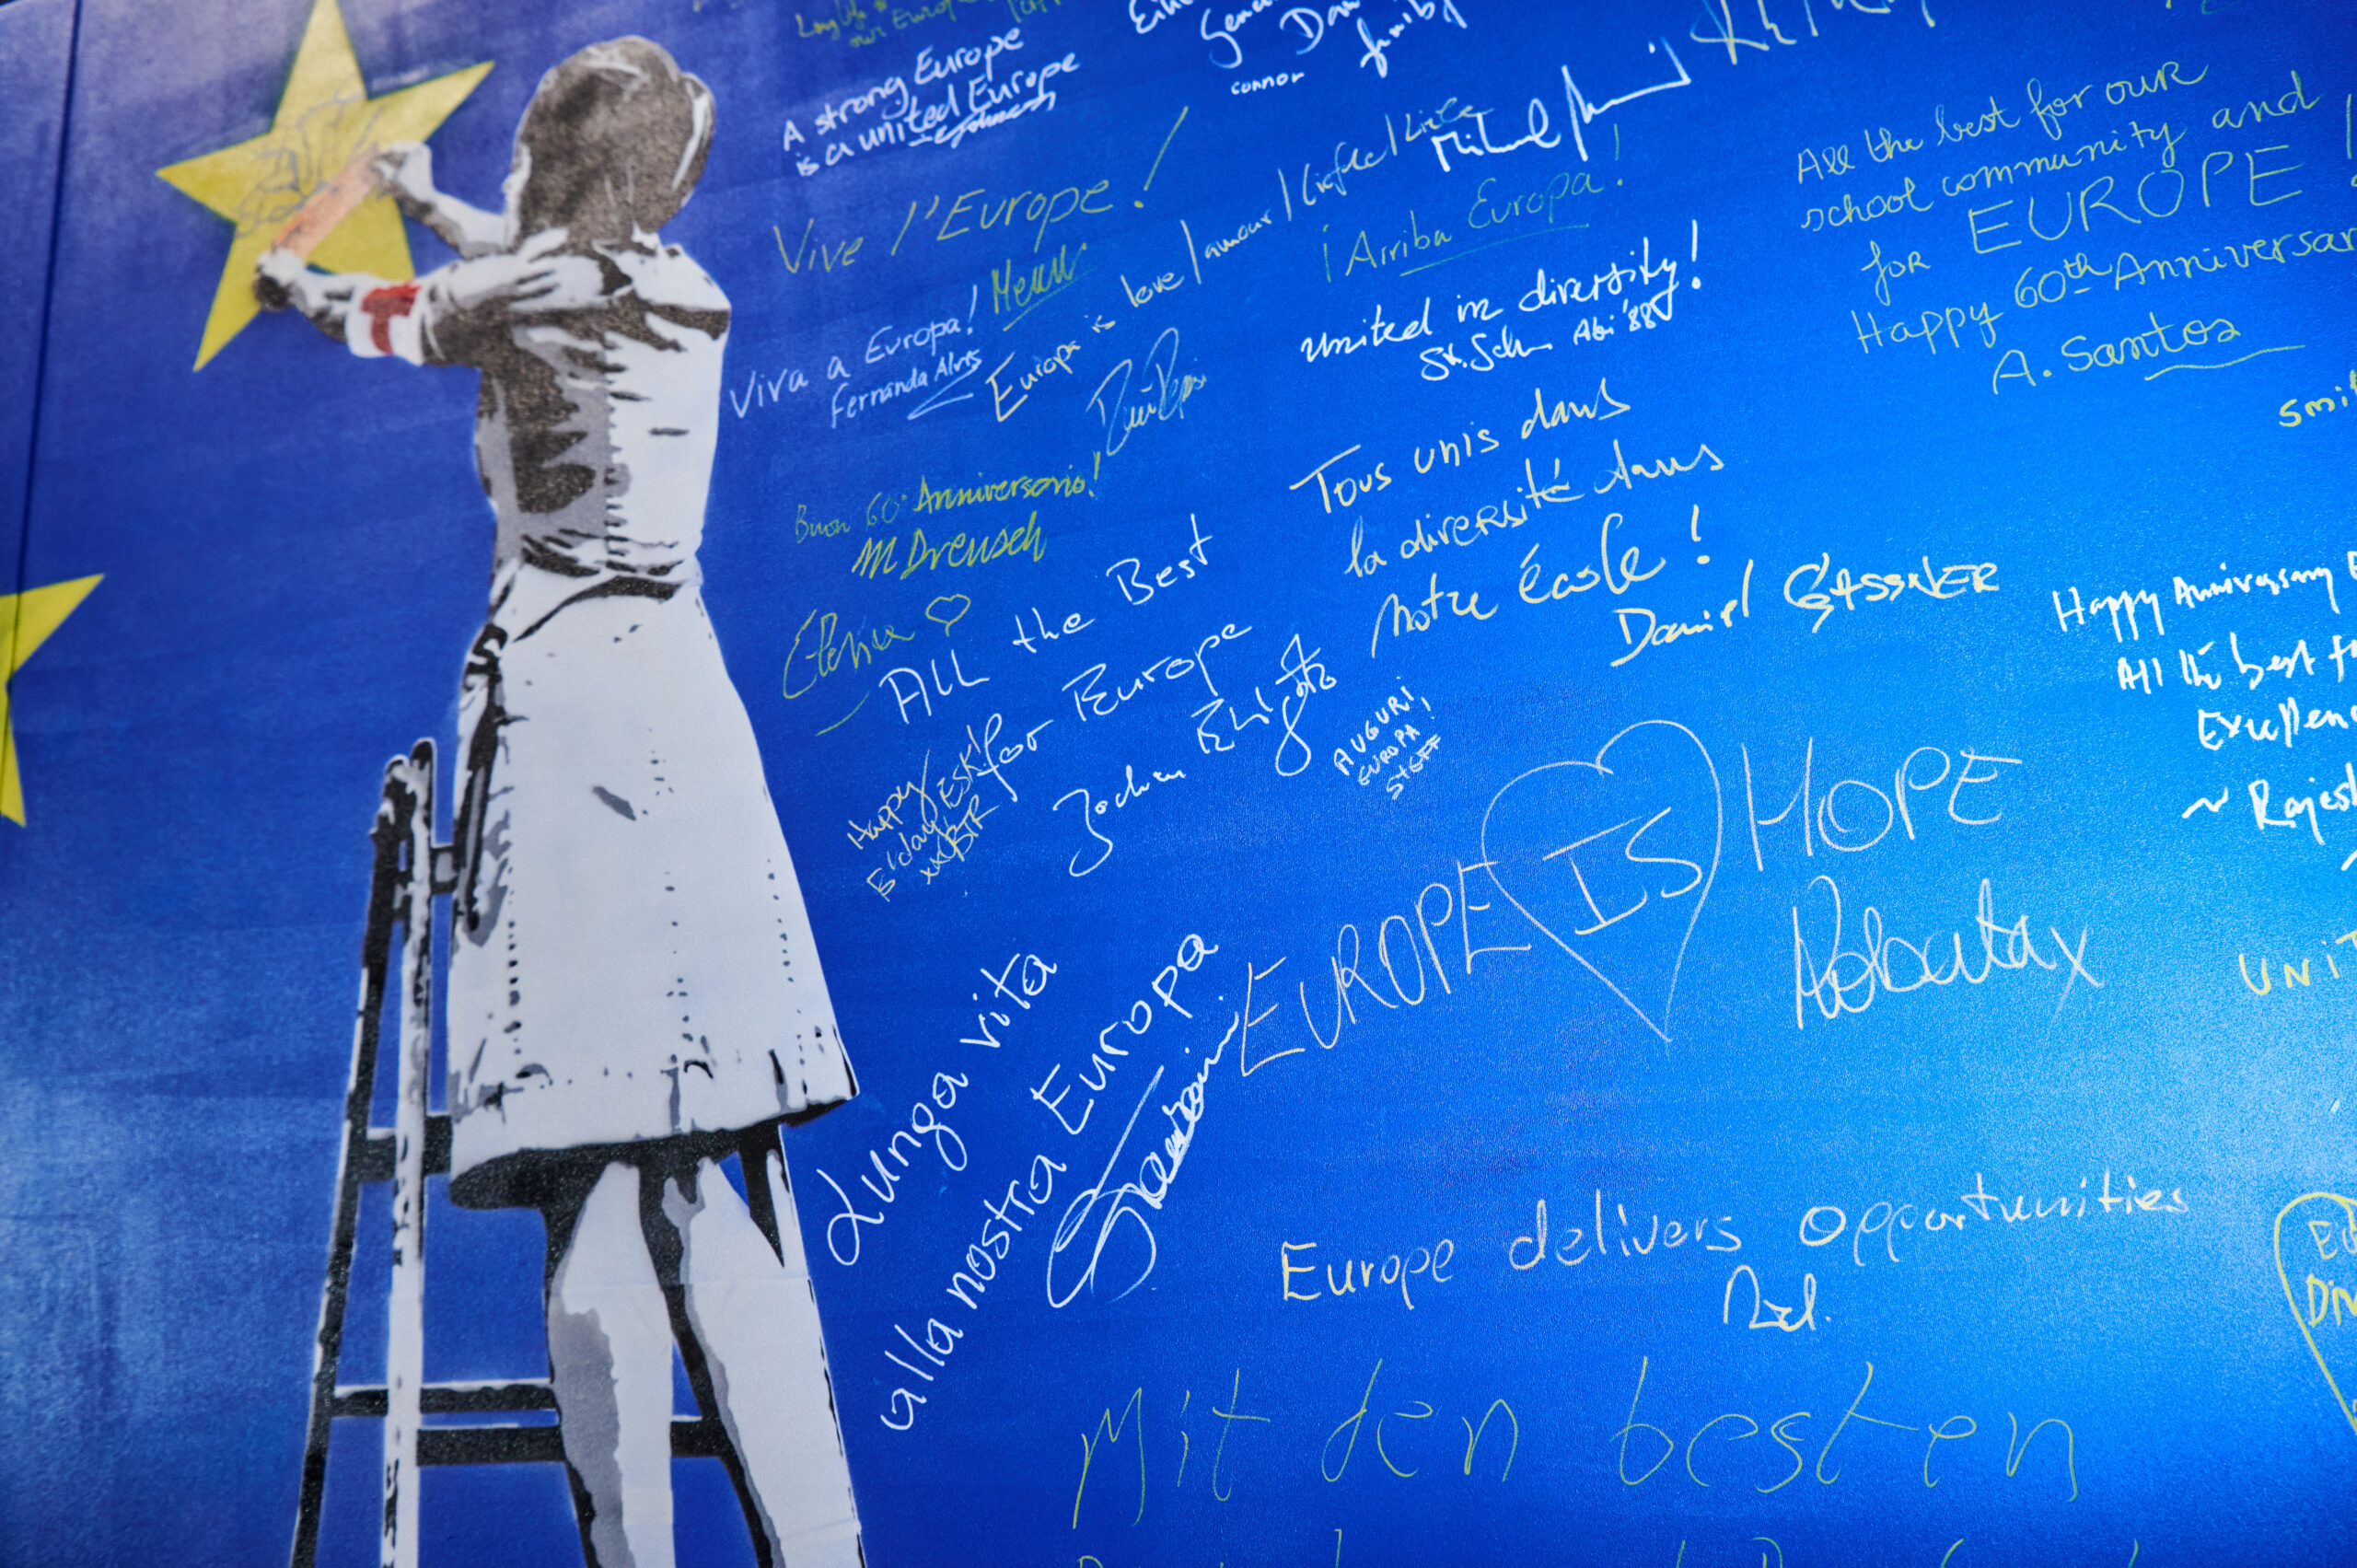 Long life to
our Europe
A strong Europe
is a united Europe
connor
family
Vive l'Europe!
Viva a Europa!
Fernanda Alves
Europa is love / amour / Liefde / Liebe
¡Arriba Europa!
united in diversity!
Abi '88
All the best for our
school community and
for EUROPE
Happy 60th Anniversar
A. Santos
smil
Buon 60° Anniversario!
M Dreusch
Tous unis dans
la diversité dans
notre école!
Daniel
ALL the Best
for Europe
Jochen
Happy
B'day ESK!
xx BTR
AUGURI,
EUROPA!
STEFF
Happy Anniversary E
All the best f
Excellen
~ Rajesh
EUROPE IS HOPE
Roberta x
UNIT
Lunga vita
alla nostra Europa
Europe delivers opportunities
Mit den besten